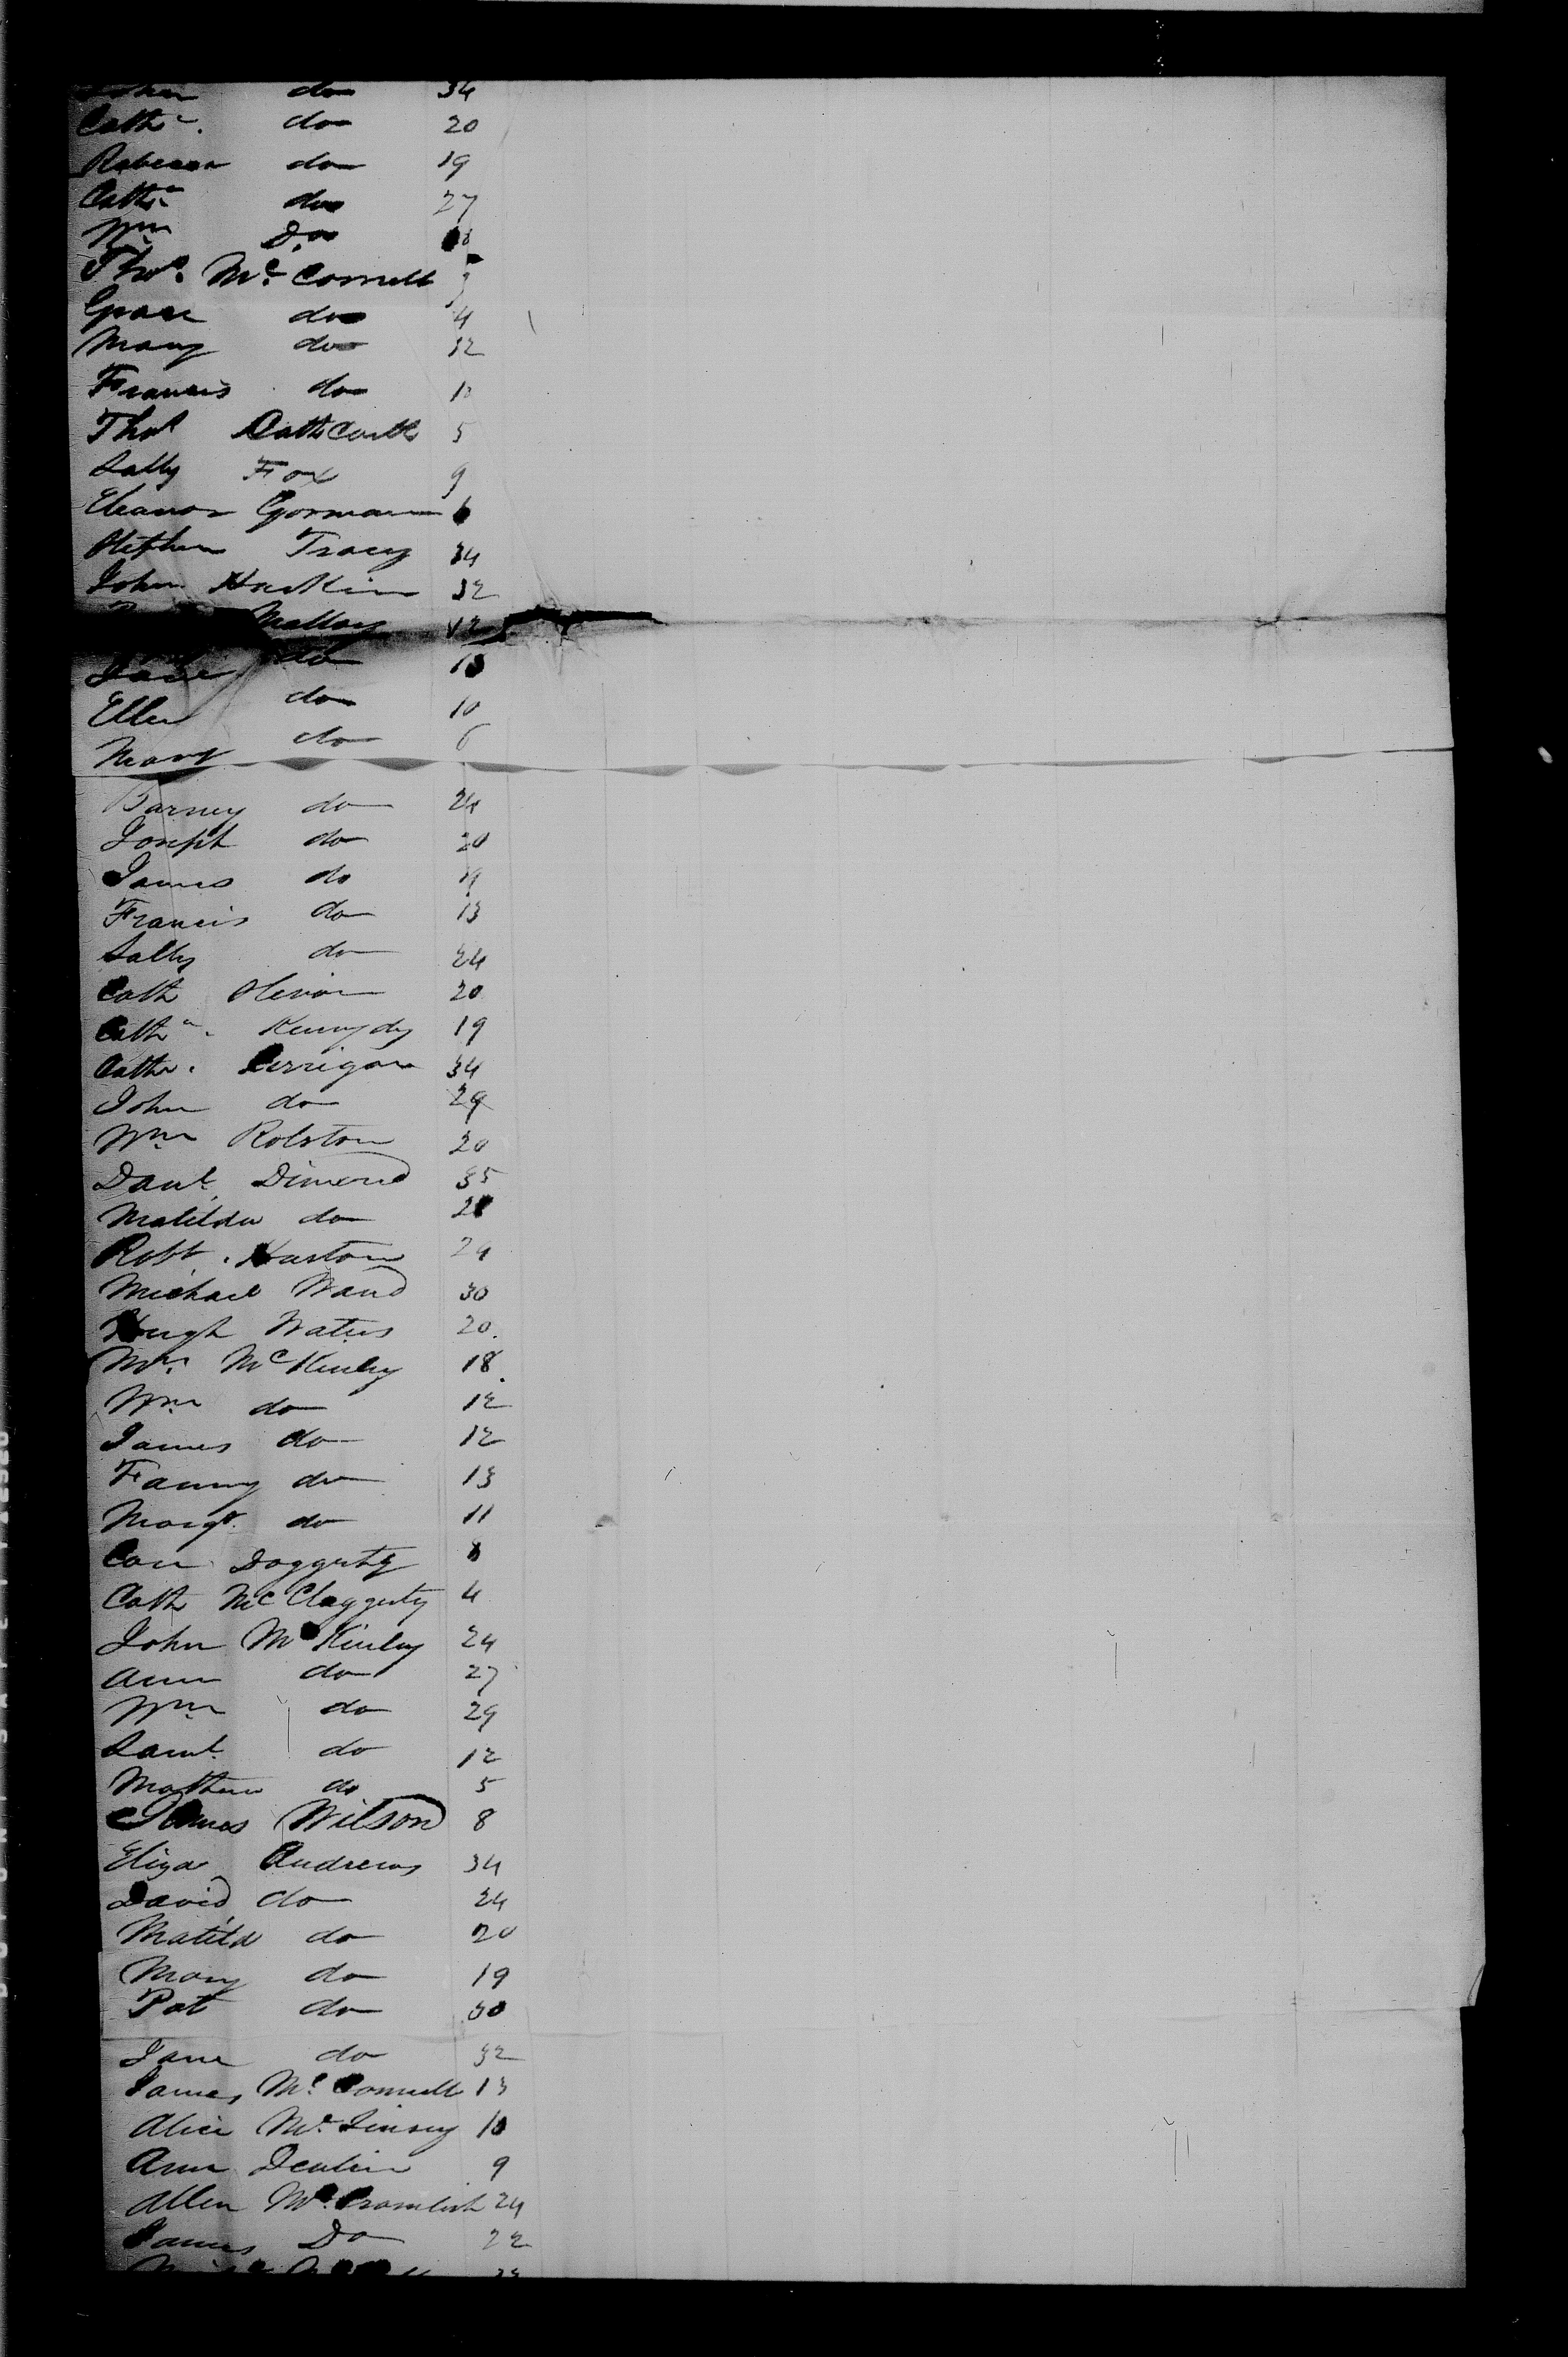 John do 34
Cath<sup>n</sup>. do 20
Rebecca do 19
Cath<sup>n</sup> do 27
W<sup>m</sup> Do
Tho<sup>s</sup>. M<sup>c</sup>. Connell
Grace do 4
Mary do 32
Francis do 10
Tho<sup>s</sup> Cathcart 5
Sally Fox 9
Eleanor Gorman 6
Stephen Tracy 34
John Haskin 32
Mallary 12
Jane do 13
Ellen do 10
Mary do 6
Barney do 24
Joseph do 20
James do 19
Francis do 13
Sally do 24
Cath 20
Cath<sup>n</sup>. Kennydy 19
Cathn. Cerrigan 34
John do 29
W<sup>m</sup> Rolston 20
Danl. Dimond 35
Matilda do
Robt. Huston 24
Michael Ward 30
Hugh Waters 20.
M<sup>rs</sup>. M<sup>c</sup>Kinley 18.
W<sup>m</sup> do 12
James do 12
Fanny do 13
Margt. do 11
Con Doggerty 8
Cath M<sup>c</sup>Claggerty 4
John Mc Kinley 24
Ann do 27
W<sup>m</sup> do 29
Saml. do 12
Mathew do 5
James Wilson 8
Eliza Andrews 34
David do 24
Matild do 20
Mary do 19
Pat do 30
Jane do 32
James M<sup>c</sup>. Connell 13
Alice M<sup>c</sup>. 10
Ann Devlin 9
Allen M<sup>c</sup>. 24
James Do 22